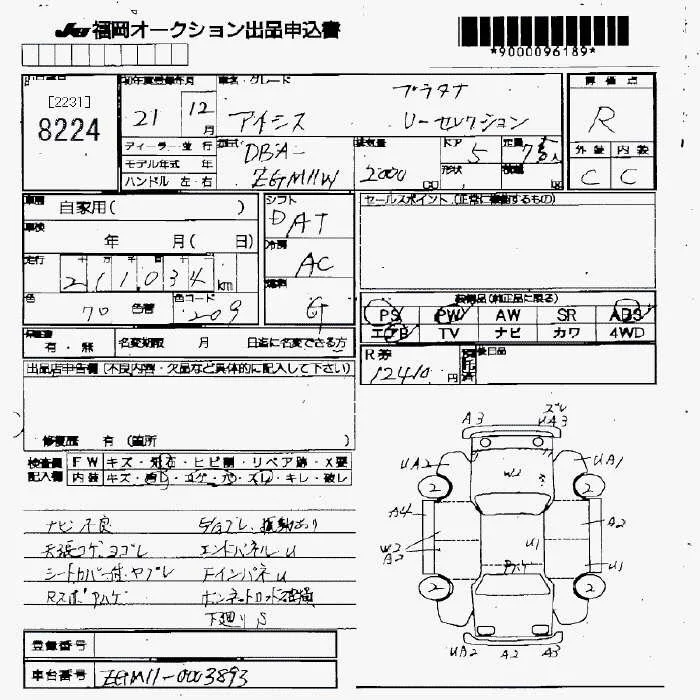 JU 福岡オークション出品申込書
*9000096189*
[2231]
8224
初年度登録年月
21 12月
車名・グレード
アイシス
プラタナ
Uーセレクション
評価点
R
外装 内装
C C
ディーラー・並行
モデル年式 年
ハンドル 左・右
型式
DBA-
ZGM11W
排気量
2000 CC
ドア
5
形状
定員
7 人
積載
自家用( )
シフト
DAT
セールスポイント (正常に機動するもの)
車検
年 月( 日)
冷房
AC
走行
十 万 千 百 十
211034 km
燃料
G
色
70 色替
色コード
209
装備品(純正品に限る)
PS PW AW SR ABS
エアB TV ナビ カワ 4WD
有・無
名変期限 月 日迄に名変できる方
R券
12410 円
後日品
出品店申告欄 (不良内容・欠品など具体的に記入して下さい)
修復歴 有 (箇所 )
検査欄 FW キズ・飛石・ヒビ割・リペア跡・X要
記入欄 内装 キズ・汚レ・コゲ・穴・スレ・キレ・破レ
ナビ不良
天張コゲ、ヨゴレ エンドパネルU
シートカバー付・ヤブレ FインパネU
Rスポ Aハゲ
下廻りS
登録番号
車台番号 ZGM11-0003893
A3 ズレ UA3
UA2 W2 UA1
2 2
A4 A2
W2 A2 U1
ハゲ U1
2 2
UA2 A2 A3